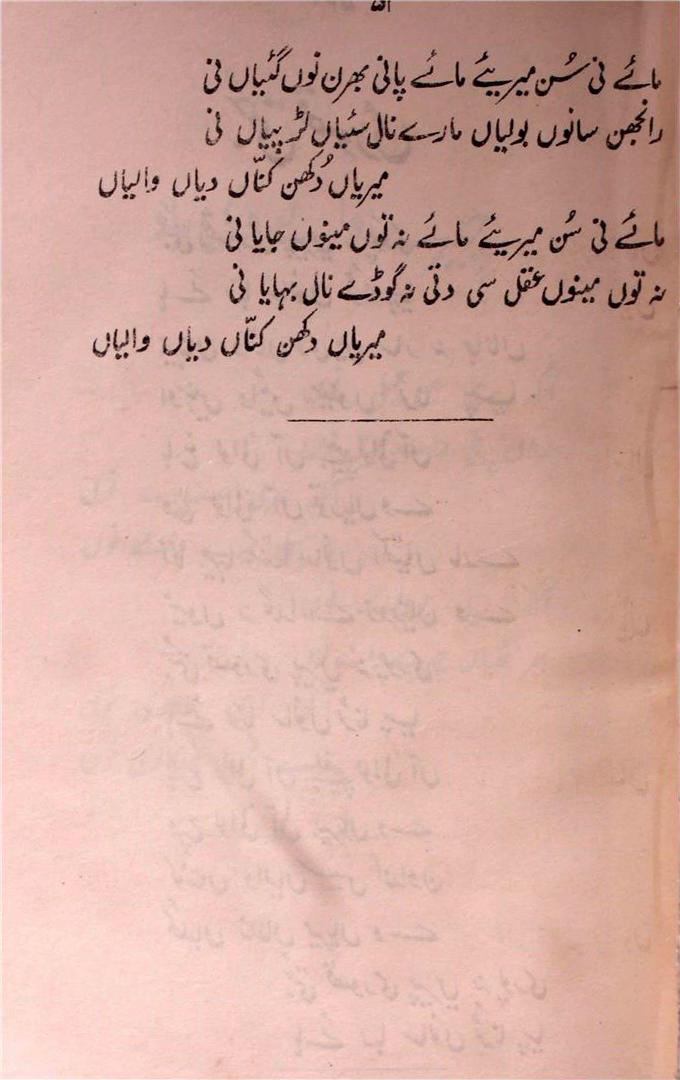 ۵۱
مائے نی سُن میریئے مائے پانی بھرن نوں گئیاں نی
رانجھن سانوں بولیاں مارے نال سئیاں لڑ پیاں نی
میریاں دُکھن کنّاں دیاں والیاں
مائے نی سُن میریئے مائے نہ توں مینوں جایا نی
نہ توں مینوں عقل سی دتی نہ گوڈے نال بہایا نی
میریاں دکھن کنّاں دیاں والیاں